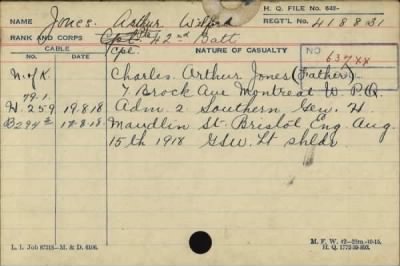 NAME Jones. Arthur Wilfred H. Q. FILE No. 649-
REGT'L No. 418831
RANK AND CORPS Cpl. 42nd Batt.
CABLE NATURE OF CASUALTY NO
No. DATE Cpl. 63744
N. of K. Charles Arthur Jones (Father)
79.1. 7 Brock Ave Montreal W. P.Q.
H.259 19.8.18 Adm. 2 Southern Gen. H.
B294 17-8-18 Maudlin St. Bristol Eng. Aug.
15th 1918 GSW. Lt shldr
L. L. Job 87218-M. & D. 6106. M. F. W. 42-25m.-10-15.
H. Q. 1772-39-893.